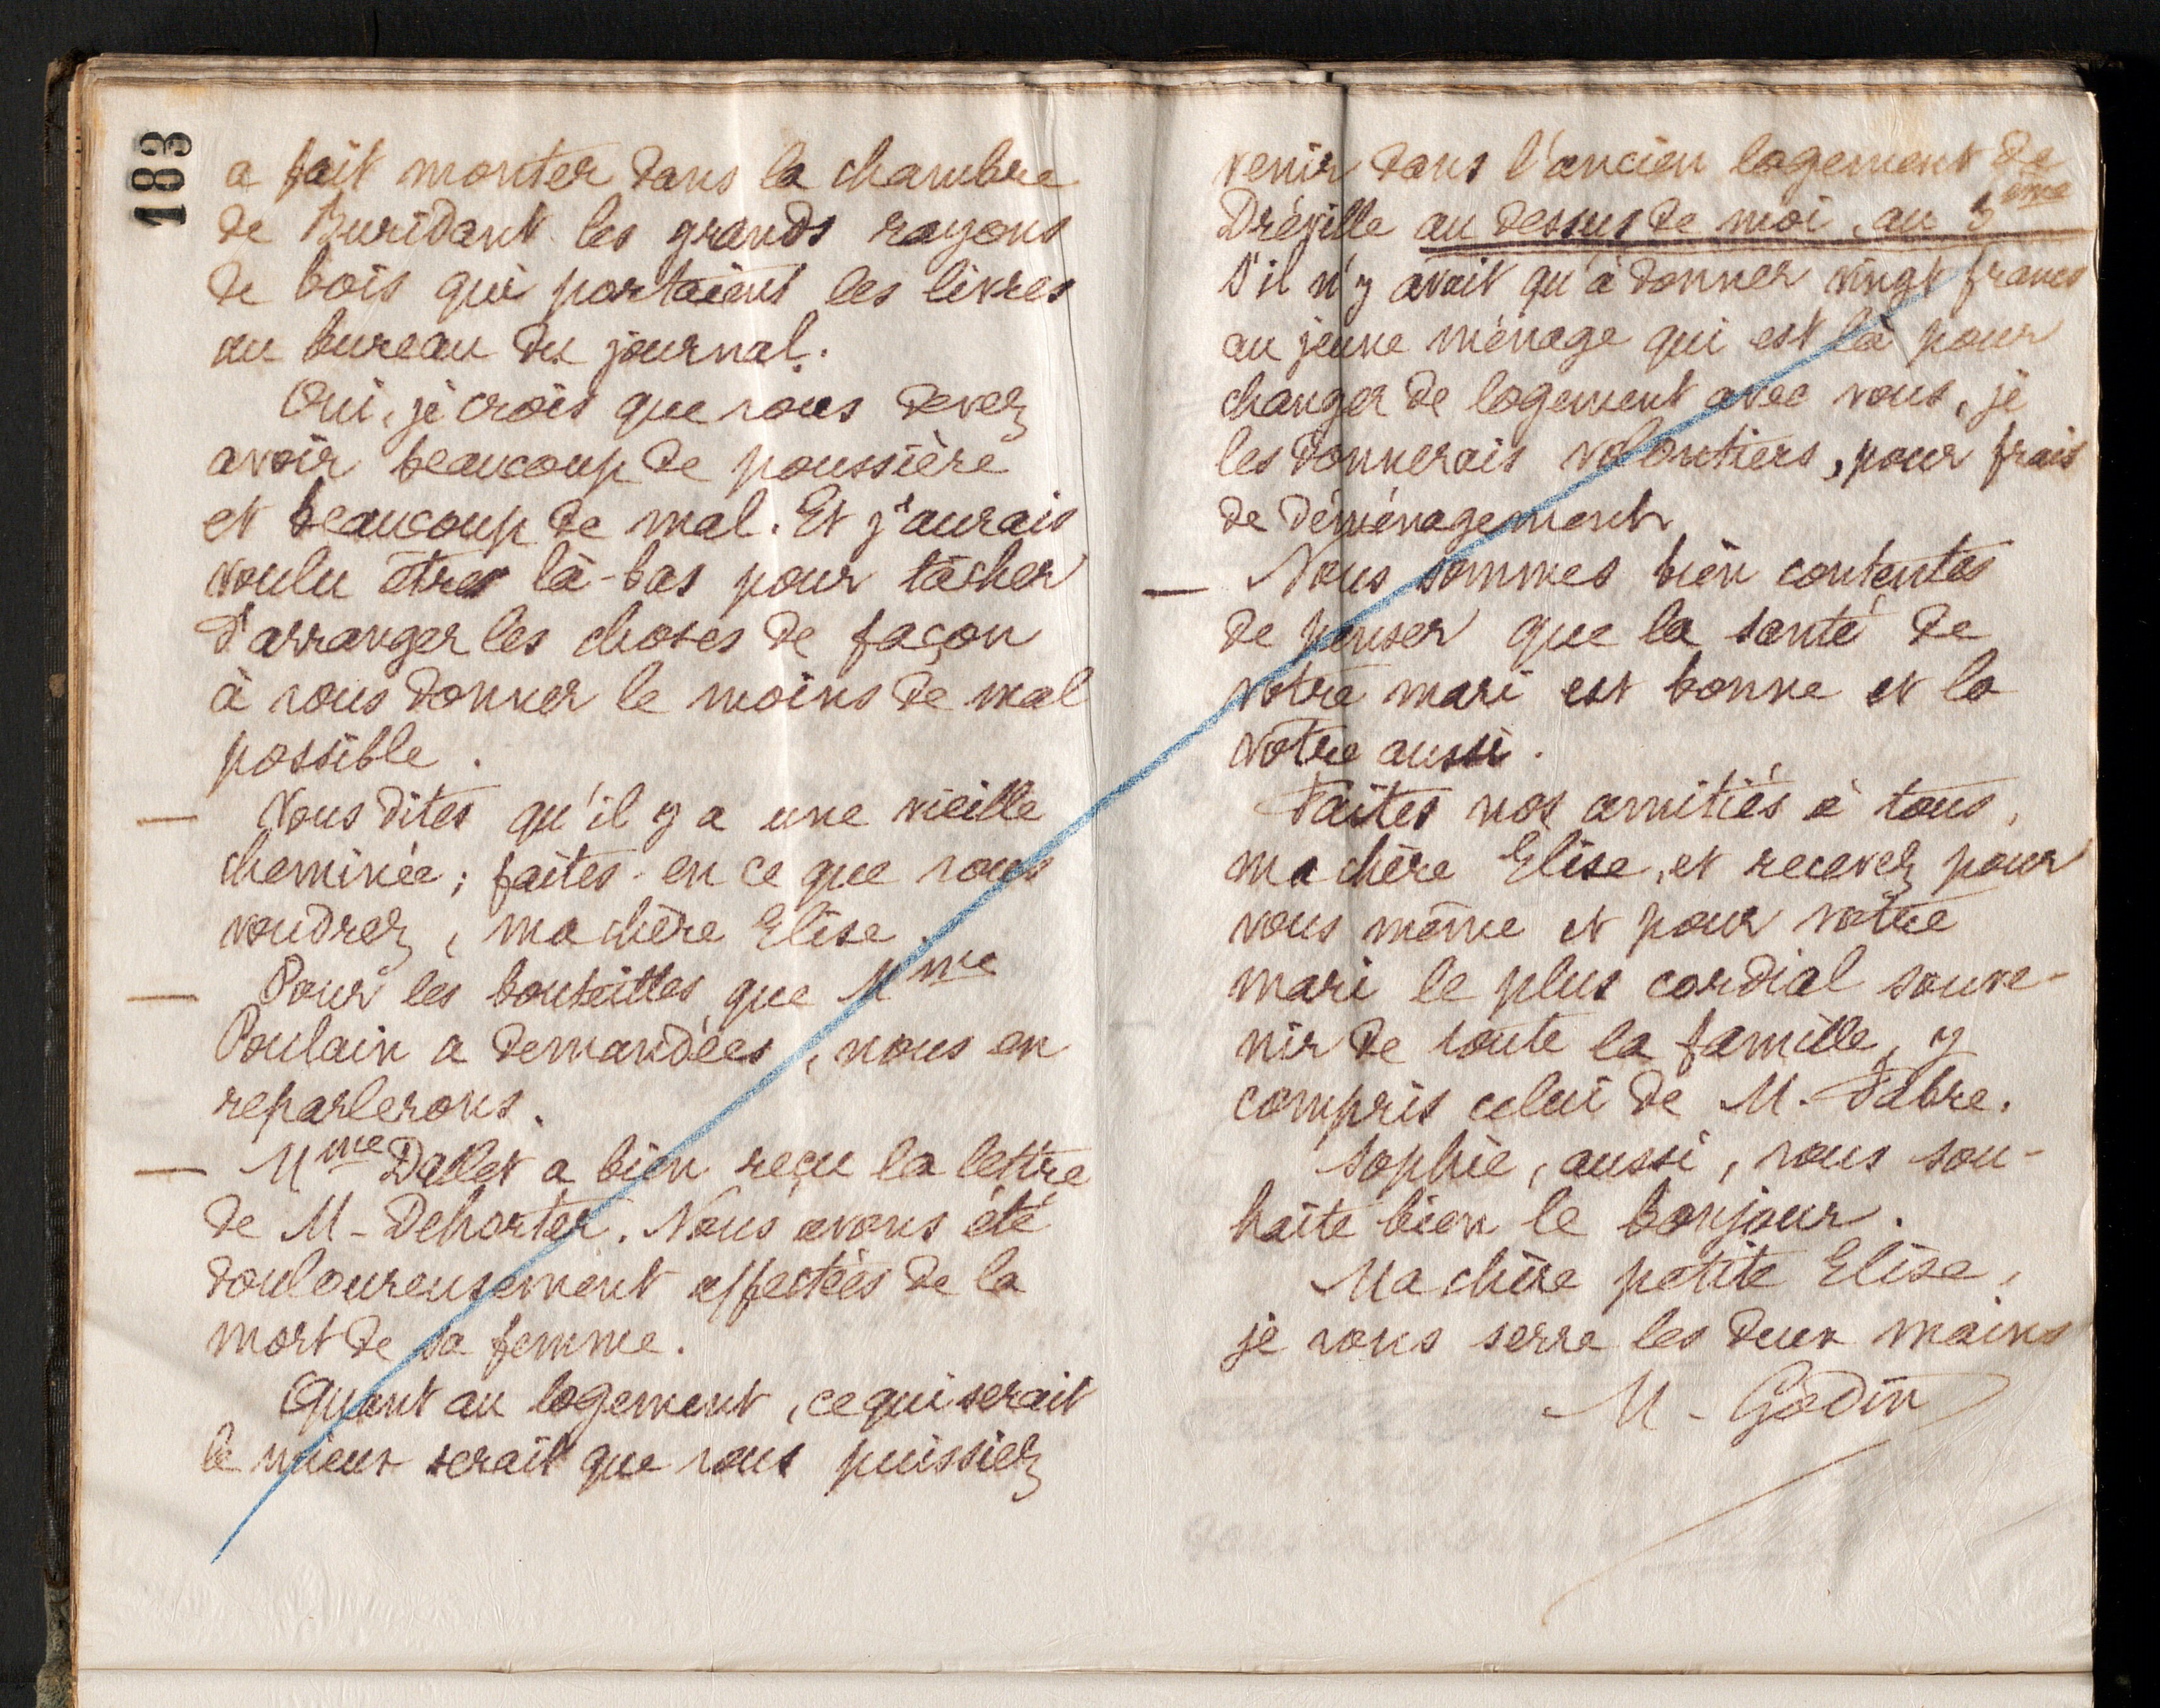 183
a fait monter dans la chambre
de Buridant les grands rayons
de bois qui portaient les livres
au bureau du journal.
Oui, je crois que vous devez
avoir beaucoup de poussière
et beaucoup de mal. Et j'aurais
voulu être là-bas pour tâcher
d'arranger les choses de façon
à vous donner le moins de mal
possible.
— Vous dites qu'il y a une vieille
cheminée ; faites-en ce que vous
voudrez, ma chère Elise.
— Pour les bouteilles que Mme
Poulain a demandées, nous en
reparlerons.
— Mme Dallet a bien reçu la lettre
de M. Dehorter. Nous avons été
douloureusement affectées de la
mort de sa femme.
Quant au logement, ce qui serait
le mieux serait que vous puissiez
venir dans l'ancien logement de
Dréville au dessus de moi, au 3ème
S'il n'y avait qu'à donner vingt francs
au jeune ménage qui est là pour
changer de logement avec vous, je
les donnerais volontiers, pour frais
de déménagement.
— Nous sommes bien contentes
de penser que la santé de
votre mari est bonne et la
vôtre aussi.
Faites nos amitiés à tous,
ma chère Elise, et recevez pour
vous même et pour votre
mari le plus cordial souve-
nir de toute la famille, y
compris celui de M. Fabre.
Sophie, aussi, vous sou-
haite bien le bonjour.
Ma chère petite Elise,
je vous serre les deux mains
M. Godin